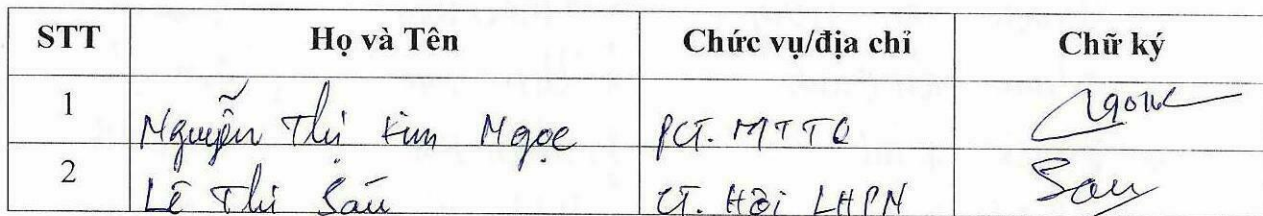 STT Họ và Tên Chức vụ/địa chỉ Chữ ký
1 Nguyễn Thị Kim Ngọc PCT. MTTQ Ngọc
2 Lê Thị Sáu CT. Hội LHPN Sáu